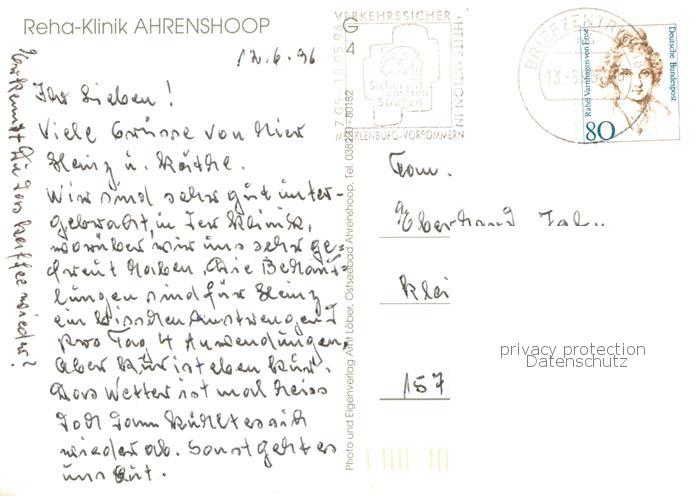 Reha-Klinik AHRENSHOOP
12.6.96
Ihr Lieben!
Viele Grüsse von Hier
Heinz u. Käthe.
Wir sind sehr gut unter-
gebracht, in der Klinik,
worüber wir uns sehr ge-
freut haben. Die Behand-
lungen sind für Heinz
ein bisschen Anstrengend
pro Tag 4 Anwendungen,
aber Kur ist eben Kur.
Das Wetter ist mal heiss
doch dann kühlt es sich
wieder ab. Sonst geht es
uns Gut.
Erkennst Du das Kaffee wieder?
Photo und Eigenverlag Löber, Ostseebad Ahrenshoop, Tel. 038220-80182
VERKEHRSSICHER
HEUTE AKTION IN
MECKLENBURG-VORPOMMERN
Sicher auf
unseren
Straßen
BRIEFZENTRUM
13.-6.
Rahel Varnhagen von Ense
Deutsche Bundespost
80
Fam.
Eberhard
157
privacy protection
Datenschutz